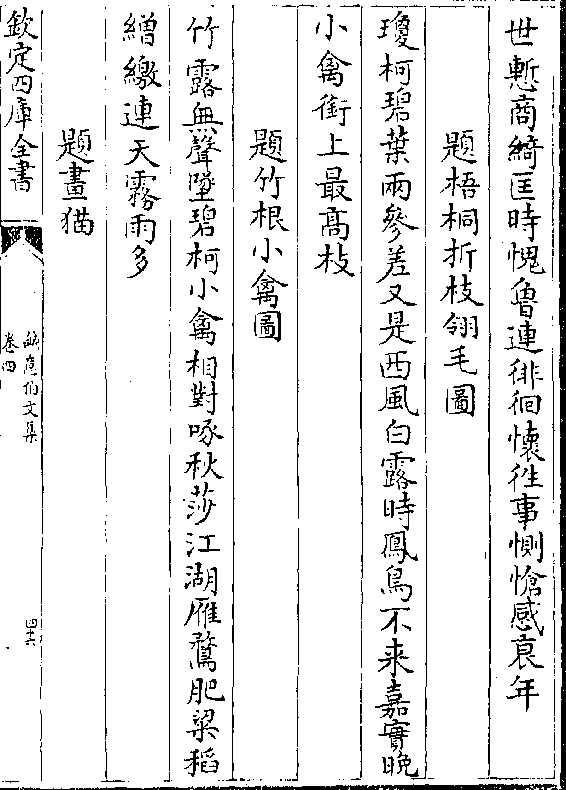 世慙商綺匡時愧魯連徘徊懷徃事惻愴感衰年
題梧桐折枝翎毛圖
瓊柯碧葉兩參差又是西風白露時鳳鳥不来嘉實晩
小禽銜上最髙枝
題竹根小禽圖
竹露無聲墜碧柯小禽相對啄秋莎江湖雁鶩肥粱稻
繒繳連天霧雨多
題畫猫
欽定四庫全書
伯文集
卷四
四十六